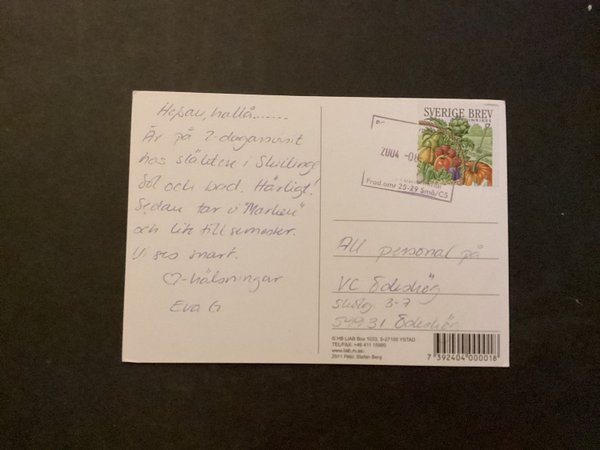 Hejsan, hallå......
Är på 2-dagarsvisit
hos släkten i Skillinge
Sol och bad. Härligt!
Sedan tar vi "Marken"
och lite till semester.
Vi ses snart.
♡-hälsningar
Eva G
SVERIGE BREV
INRIKES
2004 -08
Prod omr 25-29 Små/CS
All personal på
VC Ödeshög
3-7
599 31 Ödeshög
© HB LJAB Box 1033, S-27100 YSTAD
TEL/FAX: +46 411 15980
2911 Foto: Stefan Berg
7 392404 000018